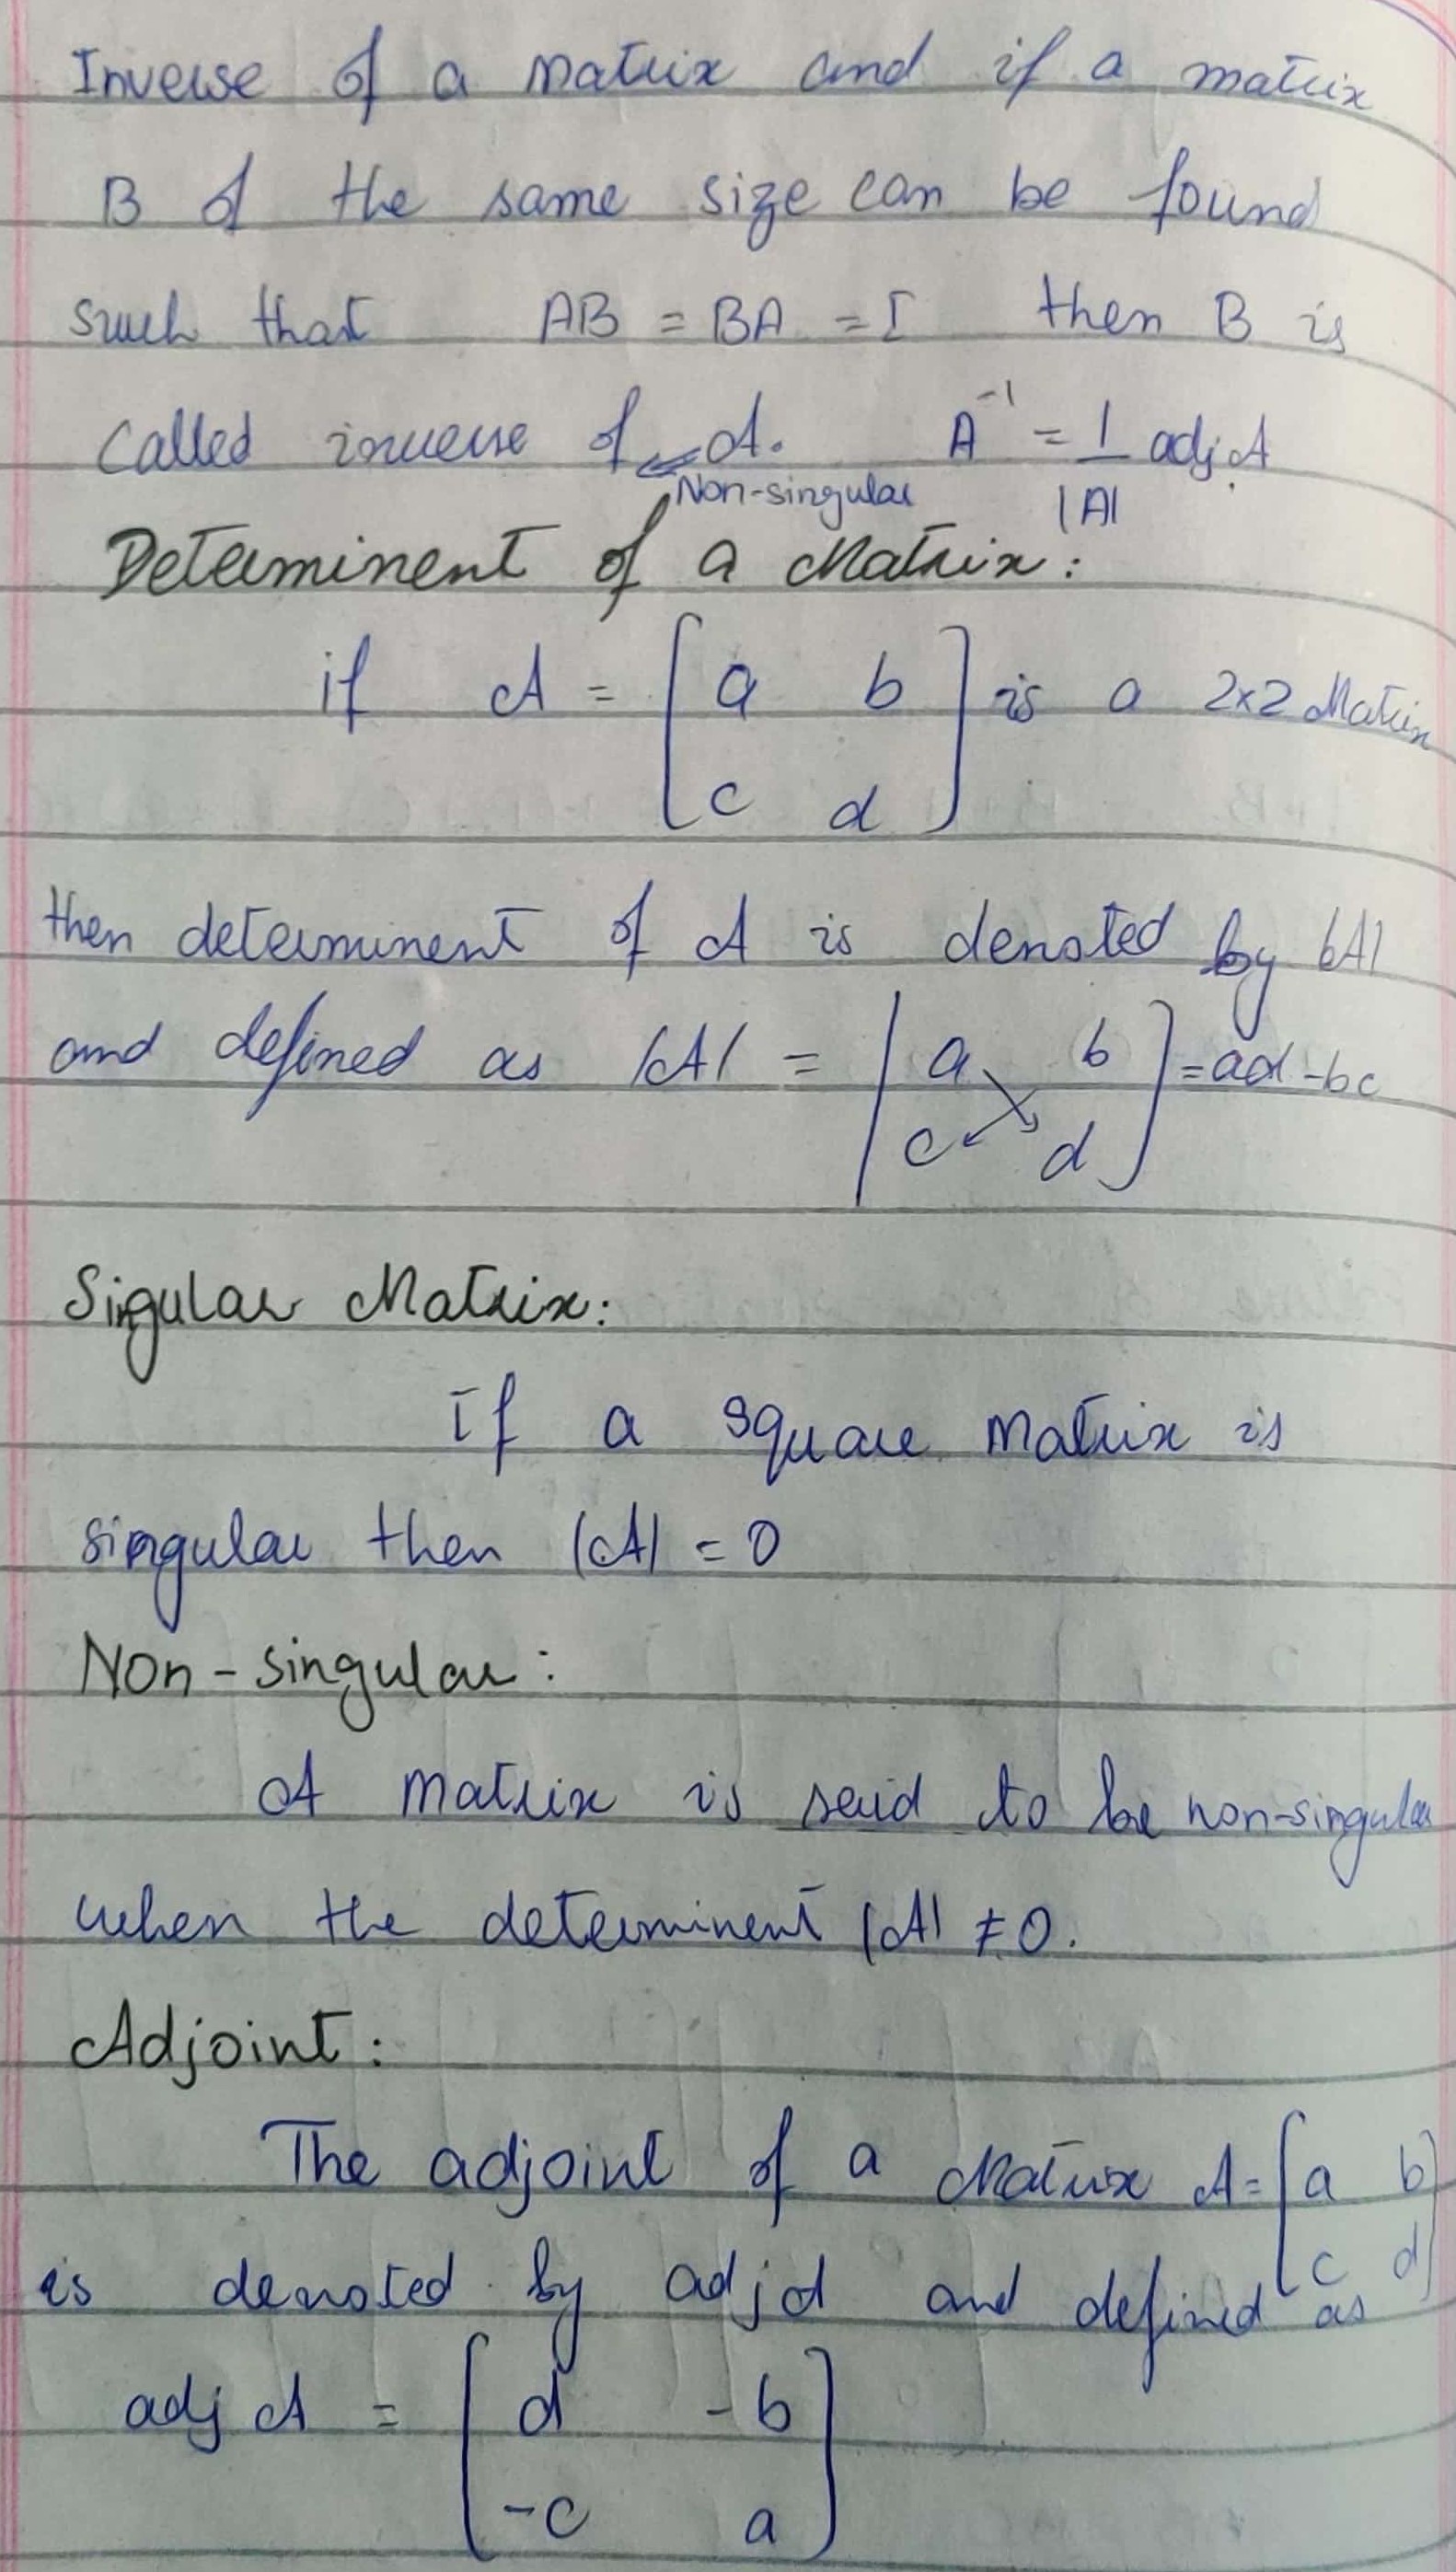 Inverse of a matrix and if a matrix
B of the same size can be found
such that AB = BA = I then B is
Called inverse of A. A⁻¹ = 1/|A| adj A
Non-singular
Determinent of a Matrix:
if A = [a b
c d] is a 2x2 Matrix
then determinent of A is denoted by |A|
and defined as |A| = |a b
c d] = ad - bc
Singular Matrix:
If a square matrix is
singular then |A| = 0
Non-singular:
A matrix is said to be non-singular
when the determinent |A| ≠ 0.
Adjoint:
The adjoint of a Matrix A = [a b
c d]
is denoted by adj A and defined as
adj A = [d -b
-c a]